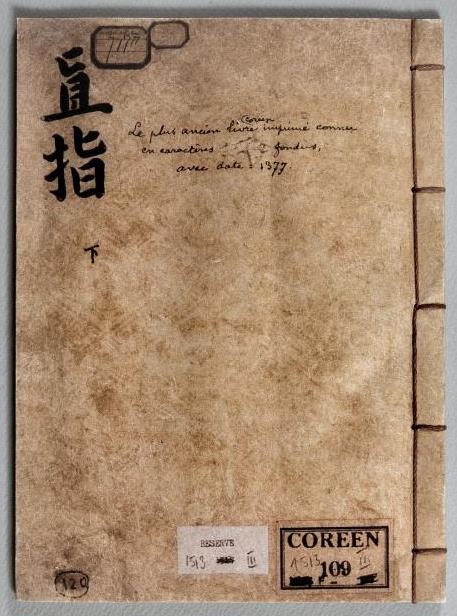 直指
下
Le plus ancien livre Coréen imprimé connu
en caractères fondus,
avec date = 1377.
RESERVE
1513 III
COREEN
109
1513 III